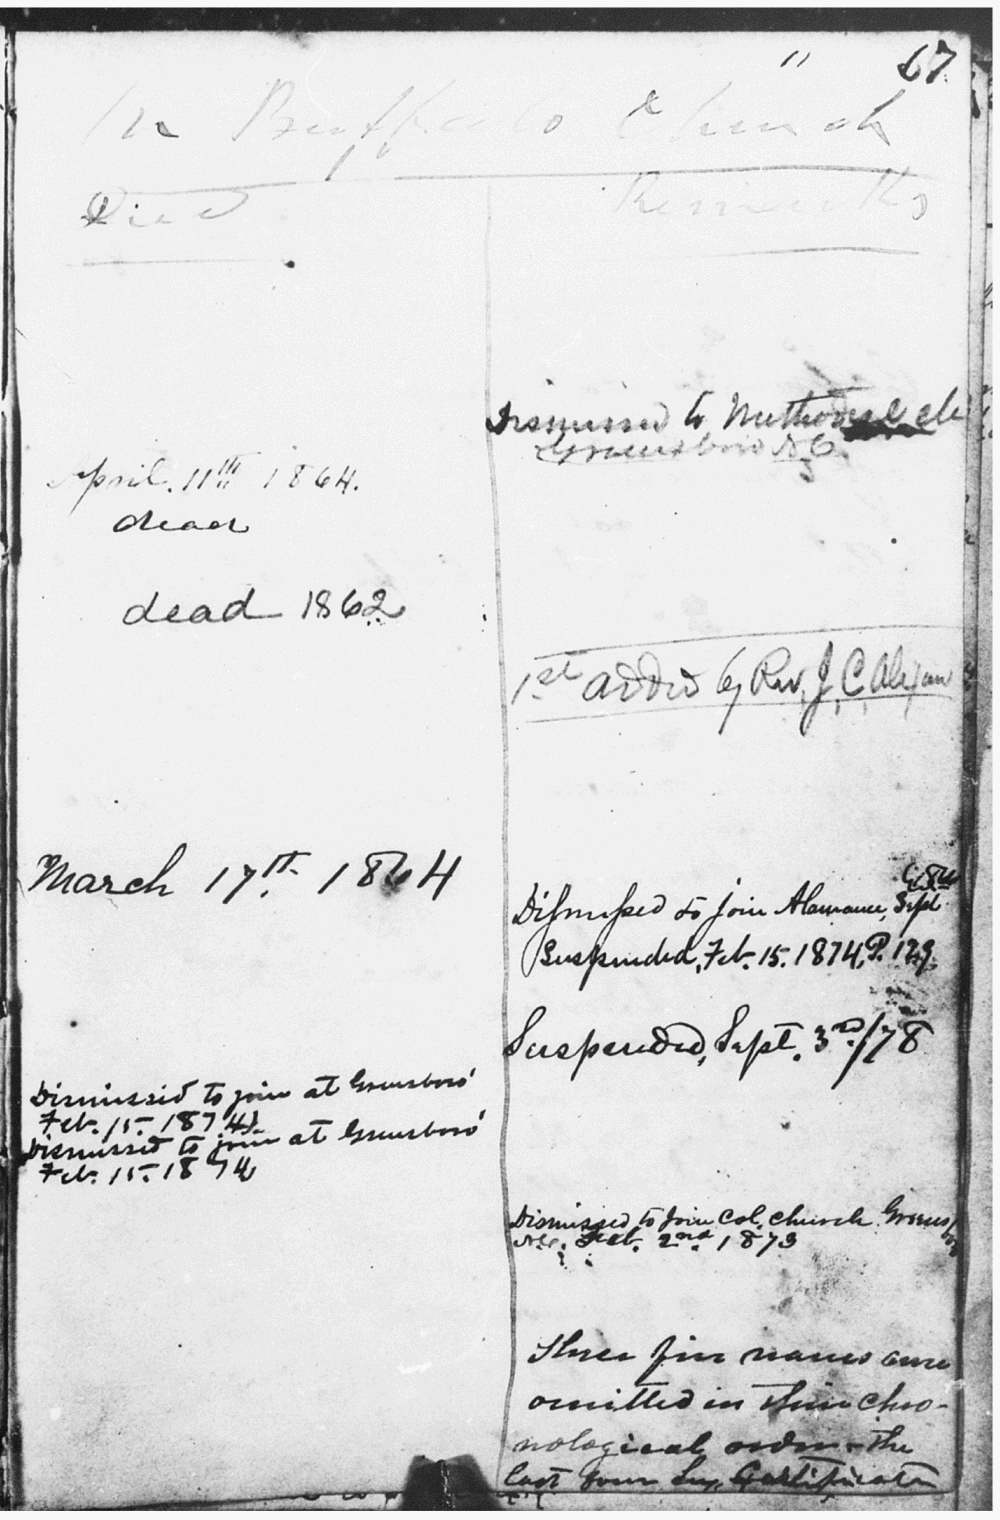 " 67
In Buffalo Church
Died Remarks
Dismissed to Methodist ch
Greensboro N.C.
April. 11th 1864.
dead
dead 1862
1st added by Rev, J, C, Alexan
March 17th. 1864
Dismissed to join Alamance, Sept
Suspended, Feb. 15. 1874, P. 129.
Suspended, Sept. 3rd/78
Dismissed to join at Greensboro'
Feb. 15. 1874
Dismissed to join at Greensboro'
Feb. 15. 1874
Dismissed to Join Col. Church Greens
boro
N.C. Feb. 2nd 1873
These five names are
omitted in their chro-
nological order - the
last four by Certificate